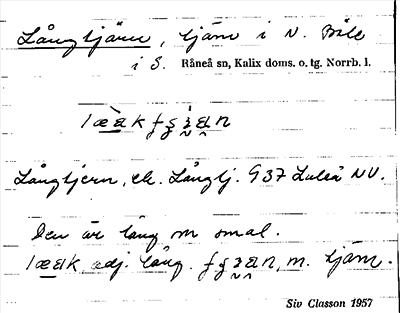 Långtjärn, tjärn i N. Böle
i S. Råneå sn, Kalix doms. o. tg. Norrb. l.
Långtjern, ek. Långtj. 937 Luleå NV.
Den är lång o smal.
adj. lång. m. tjärn.
Siv Classon 1957